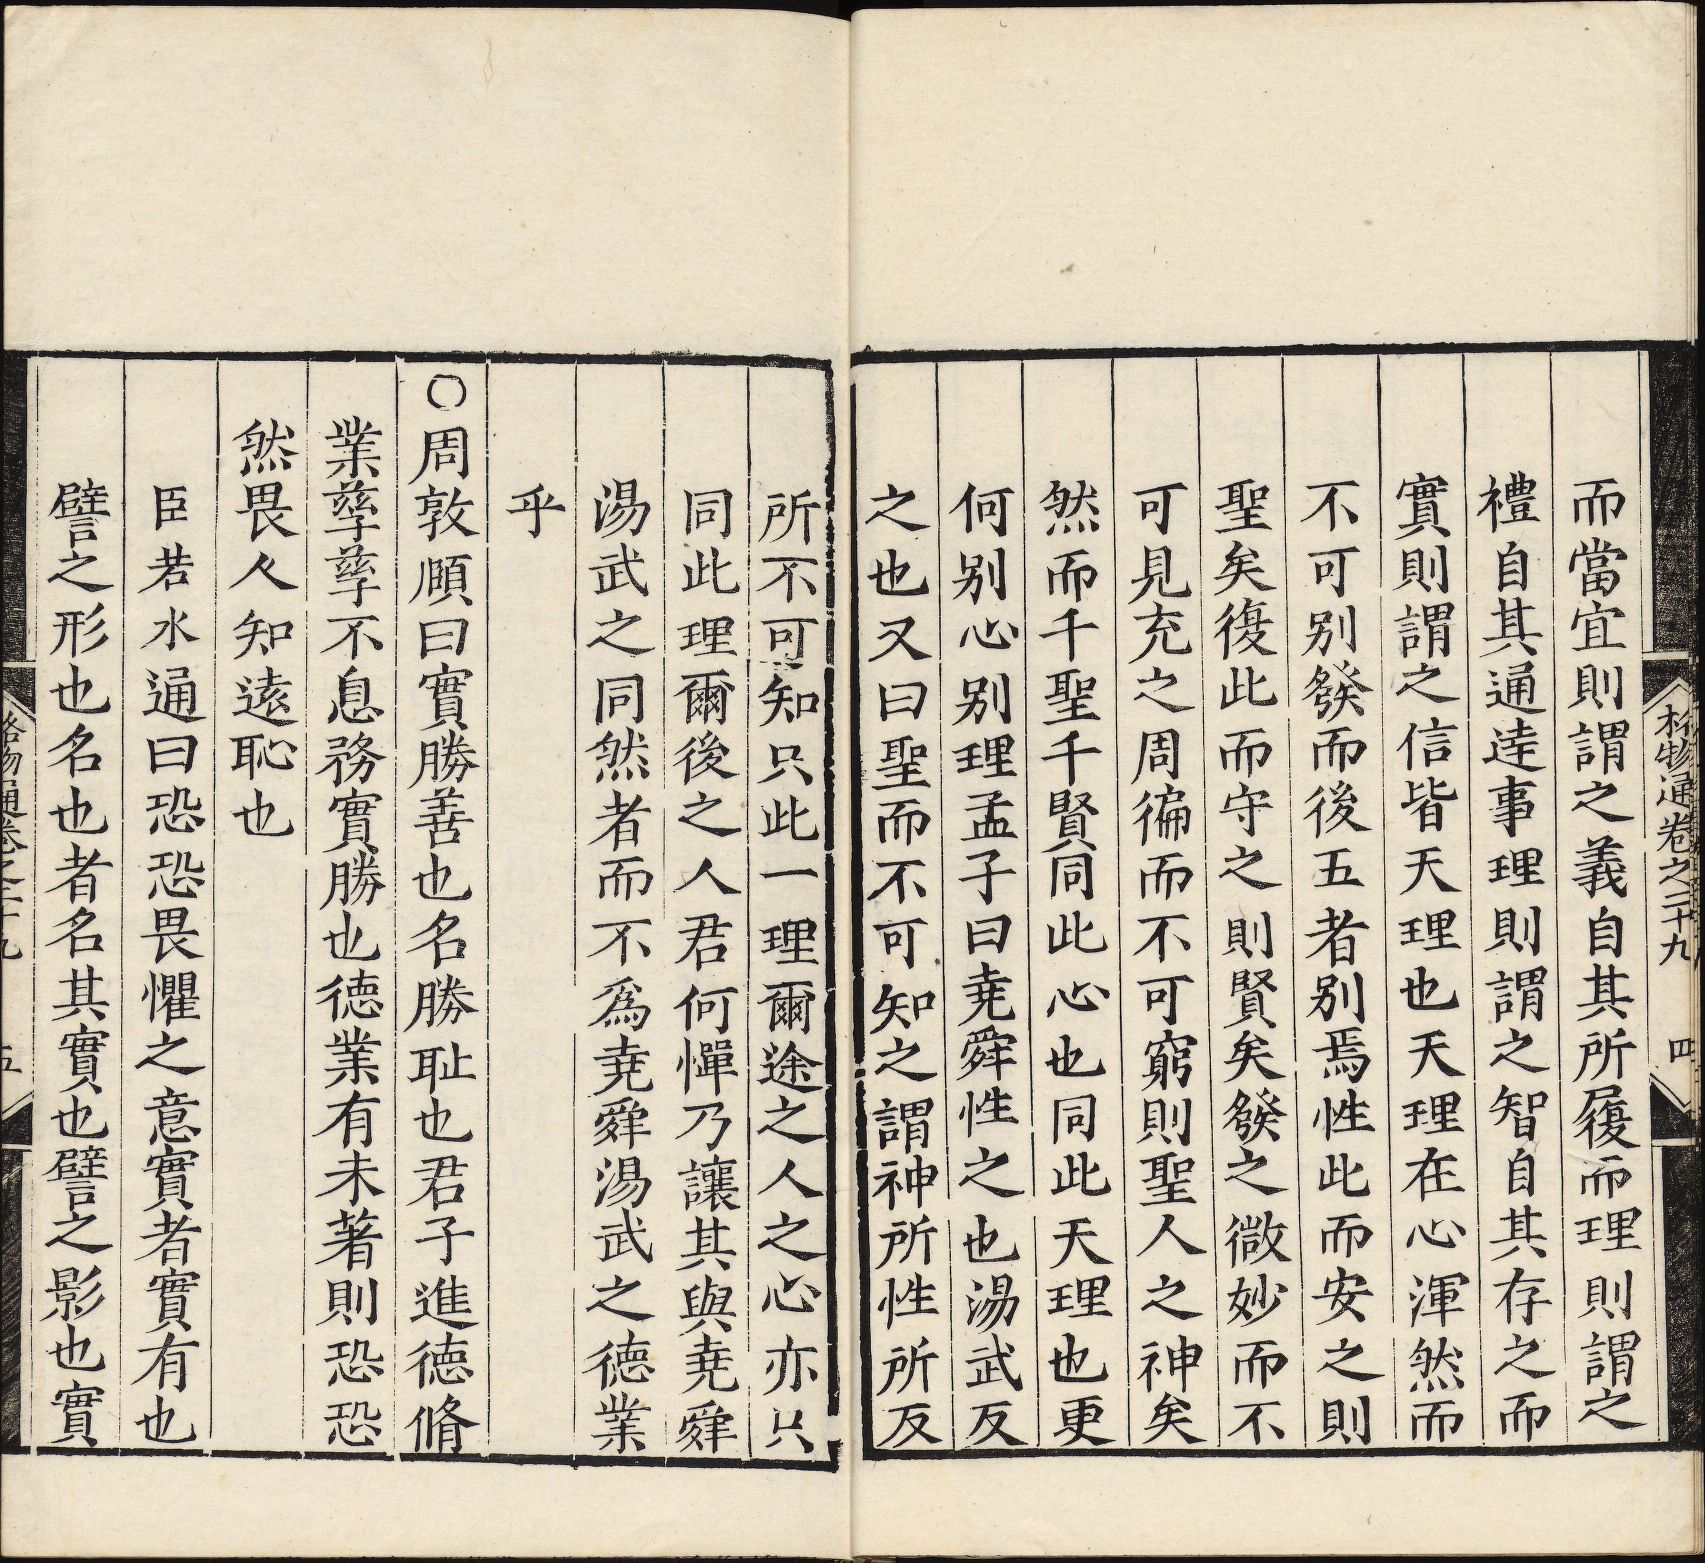 格物通卷之二十九　四
而當宜則謂之義自其所履而理則謂之
禮自其通逹事理則謂之智自其存之而
實則謂之信皆天理也天理在心渾然而
不可别發而後五者别焉性此而安之則
聖矣復此而守之則賢矣發之微妙而不
可見充之周徧而不可窮則聖人之神矣
然而千聖千賢同此心也同此天理也更
何别心别理孟子曰堯舜性之也湯武反
之也又曰聖而不可知之謂神所性所反
所不可知只此一理爾途之人之心亦只
同此理爾後之人君何憚乃讓其與堯舜
湯武之同然者而不爲堯舜湯武之德業
乎
○周敦頤曰實勝善也名勝耻也君子進德脩
業孳孳不息務實勝也德業有未著則恐恐
然畏人知遠恥也
臣若水通曰恐恐畏懼之意實者實有也
譬之形也名也者名其實也譬之影也實
格物通卷之二十九　五